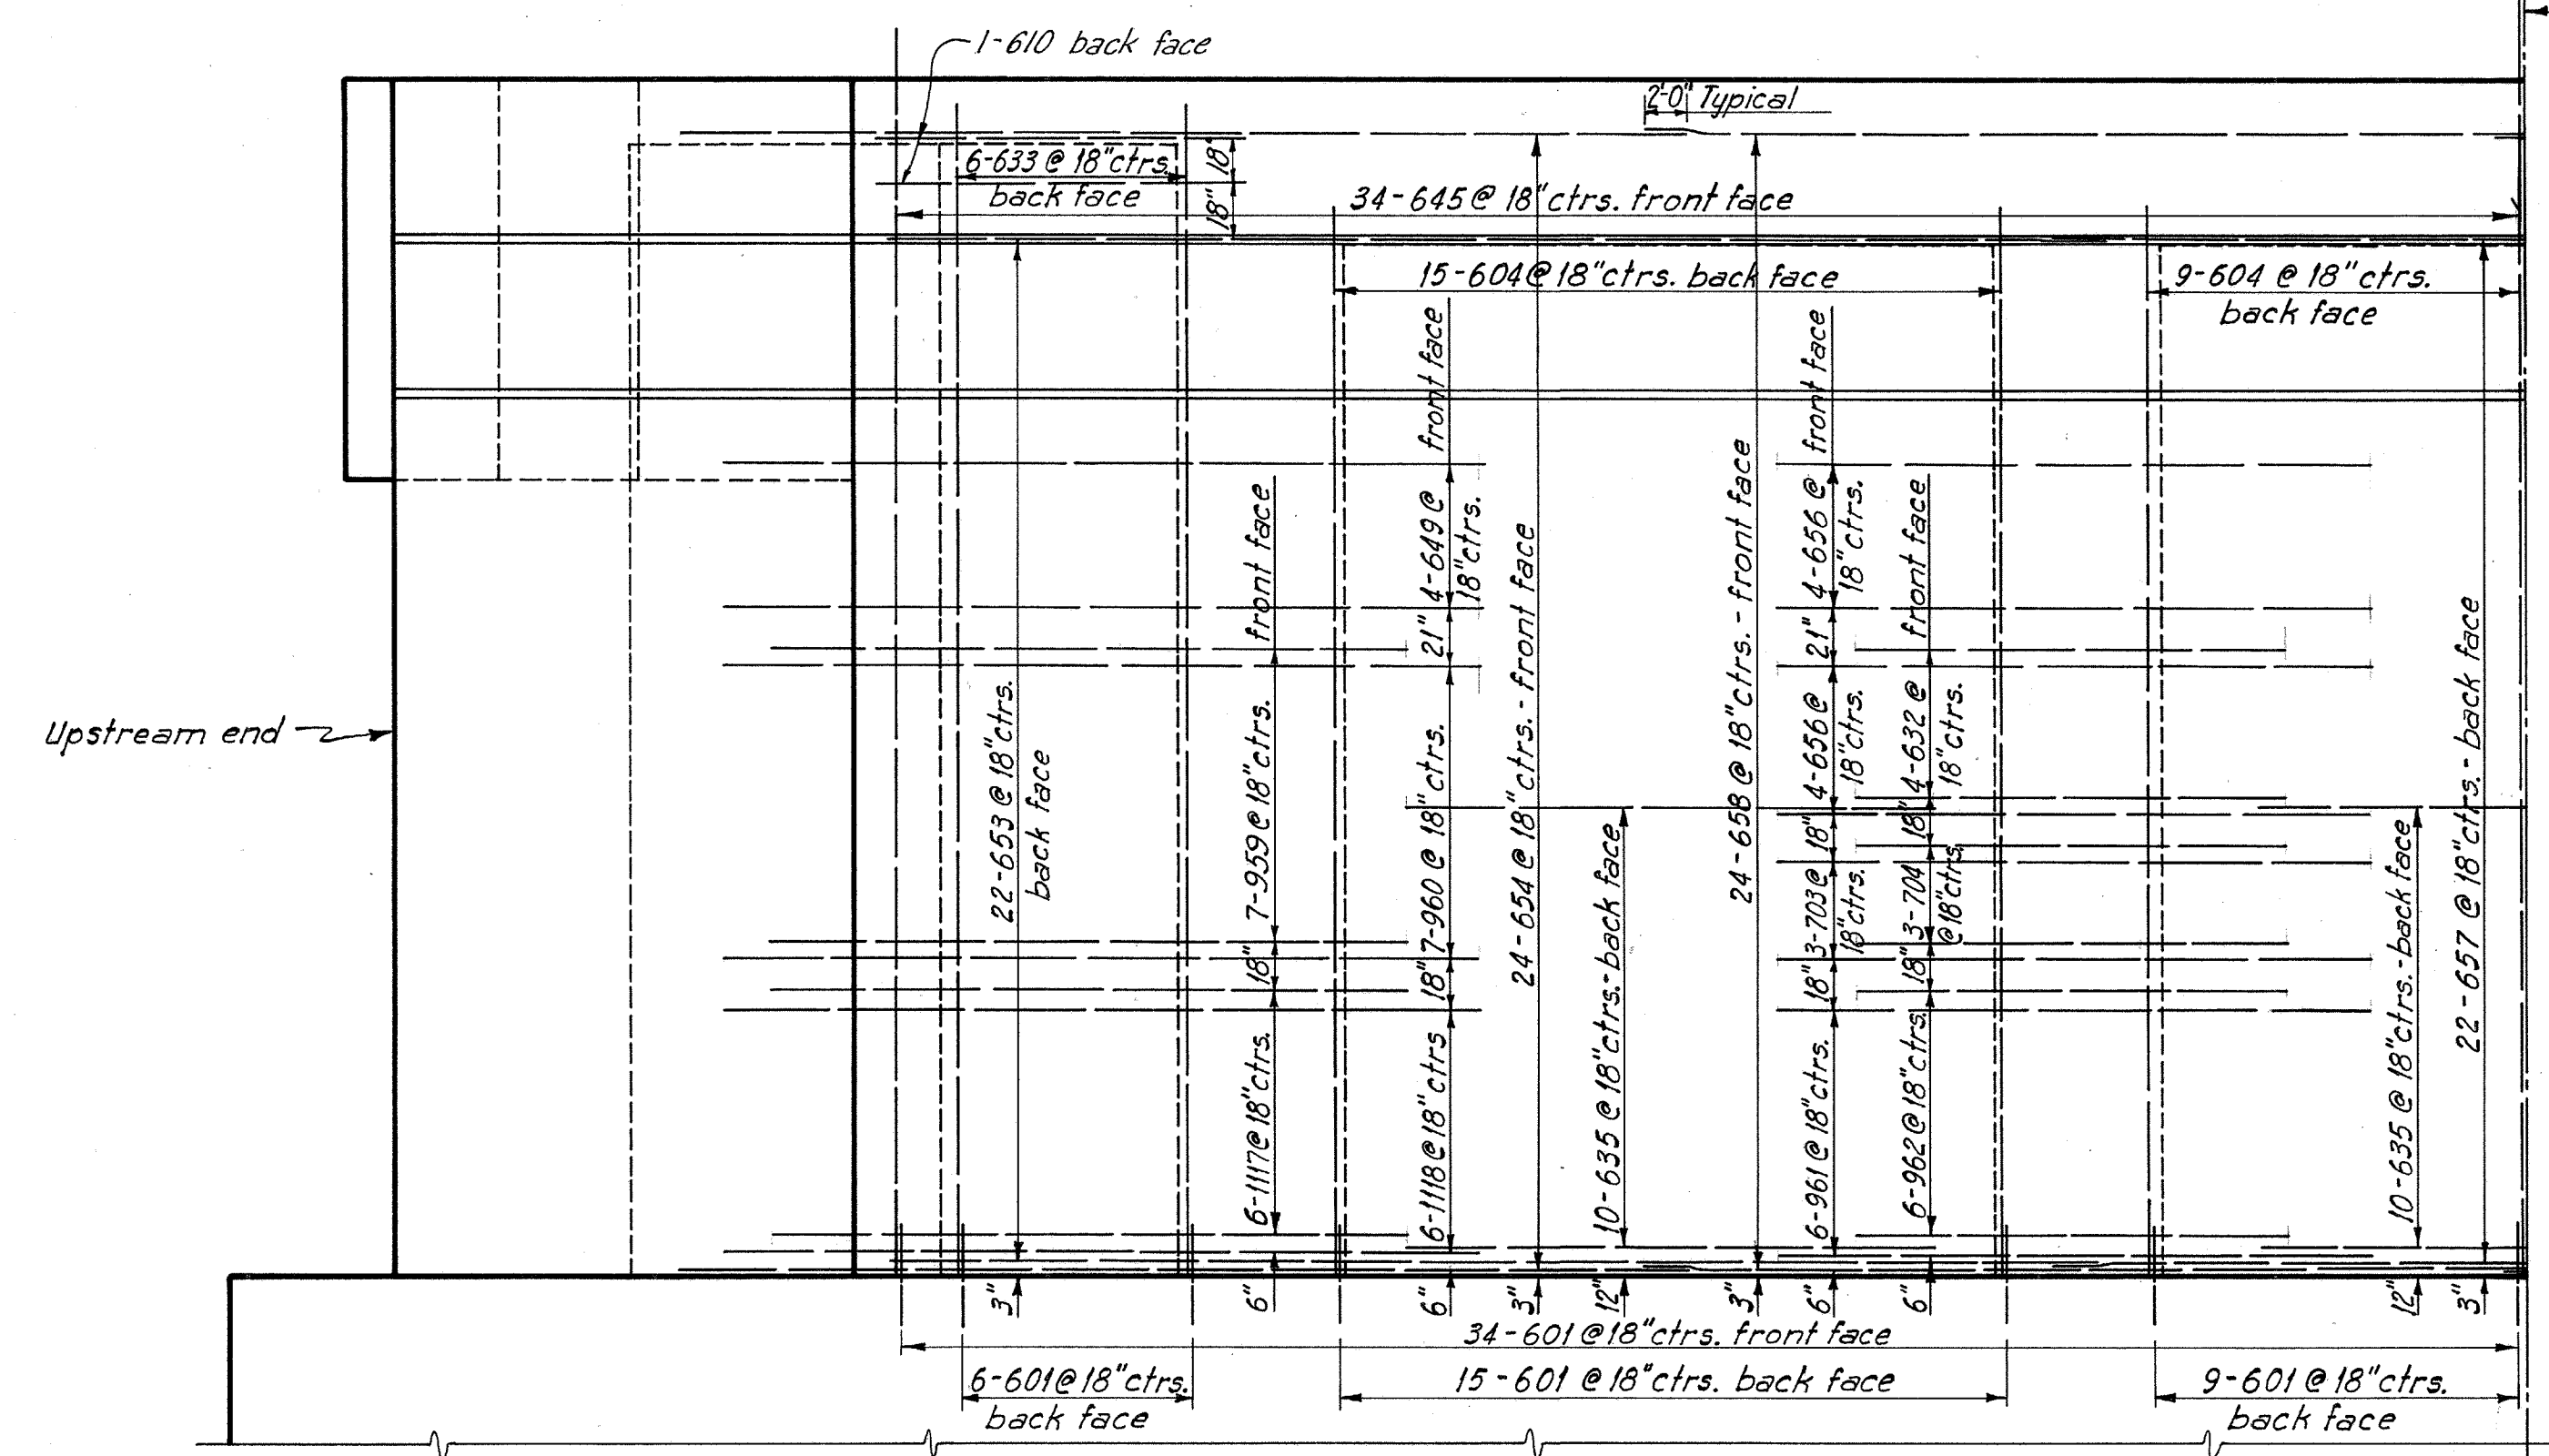 1-610 back face
2'-0" Typical
6-633 @ 18"ctrs.
back face
18"
18"
34-645 @ 18"ctrs. front face
15-604 @ 18"ctrs. back face
9-604 @ 18"ctrs.
back face
Upstream end
22-653 @ 18"ctrs.
back face
3"
7-959 @ 18"ctrs. front face
18"
6-1117 @ 18"ctrs.
6"
4-649 @ front face
18"ctrs.
21"
7-960 @ 18"ctrs.
18"
6-1118 @ 18"ctrs
6"
24-654 @ 18"ctrs. - front face
3"
10-635 @ 18"ctrs.-back face
12"
24-658 @ 18"ctrs. - front face
3"
4-656 @ front face
18"ctrs.
21"
4-656 @
18"ctrs.
18"
3-703 @
18"ctrs.
18"
6-961 @ 18"ctrs.
6"
4-632 @ front face
18"ctrs.
18"
3-704
@ 18"ctrs.
18"
6-962 @ 18"ctrs.
6"
10-635 @ 18"ctrs.-back face
12"
22-657 @ 18"ctrs.- back face
3"
34-601 @ 18"ctrs. front face
6-601 @ 18"ctrs.
back face
15-601 @ 18"ctrs. back face
9-601 @ 18"ctrs.
back face